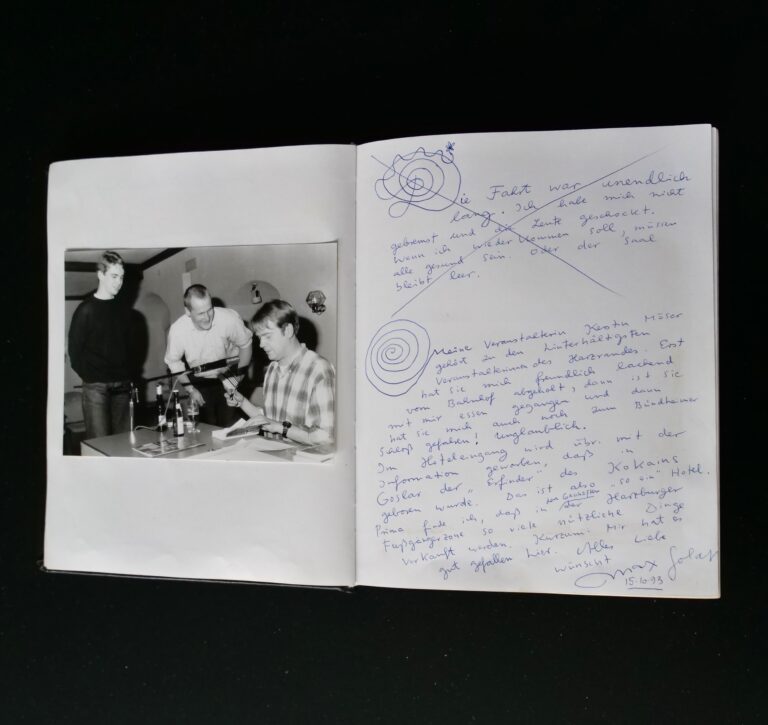 ie Fahrt war unendlich
lang. Ich habe mich nicht
gebremst und die Leute geschockt.
Wenn ich wieder kommen soll, müssen
alle gesund sein. Oder der Saal
bleibt leer.
Meine Veranstalterin Kerstin Möser
gehört zu den hinterhältigsten
Veranstalterinnen des Harzrandes. Erst
hat sie mich freundlich lachend
vom Bahnhof abgeholt, dann ist sie
mit mir essen gegangen und dann
hat sie mich auch noch zum Bündheimer
Schloß gefahren! Unglaublich.
Im Hoteleingang wird übr. mit der
Information geworben, daß in
Goslar der „Erfinder" des Kokains
geboren wurde. Das ist also „so ein" Hotel.
Prima finde ich, daß in den Geschäften der Harzburger
Fußgängerzone so viele nützliche Dinge
verkauft werden. Kurzum: Mir hat es
gut gefallen hier. Alles Liebe
wünscht Max Goldt
15.10.93